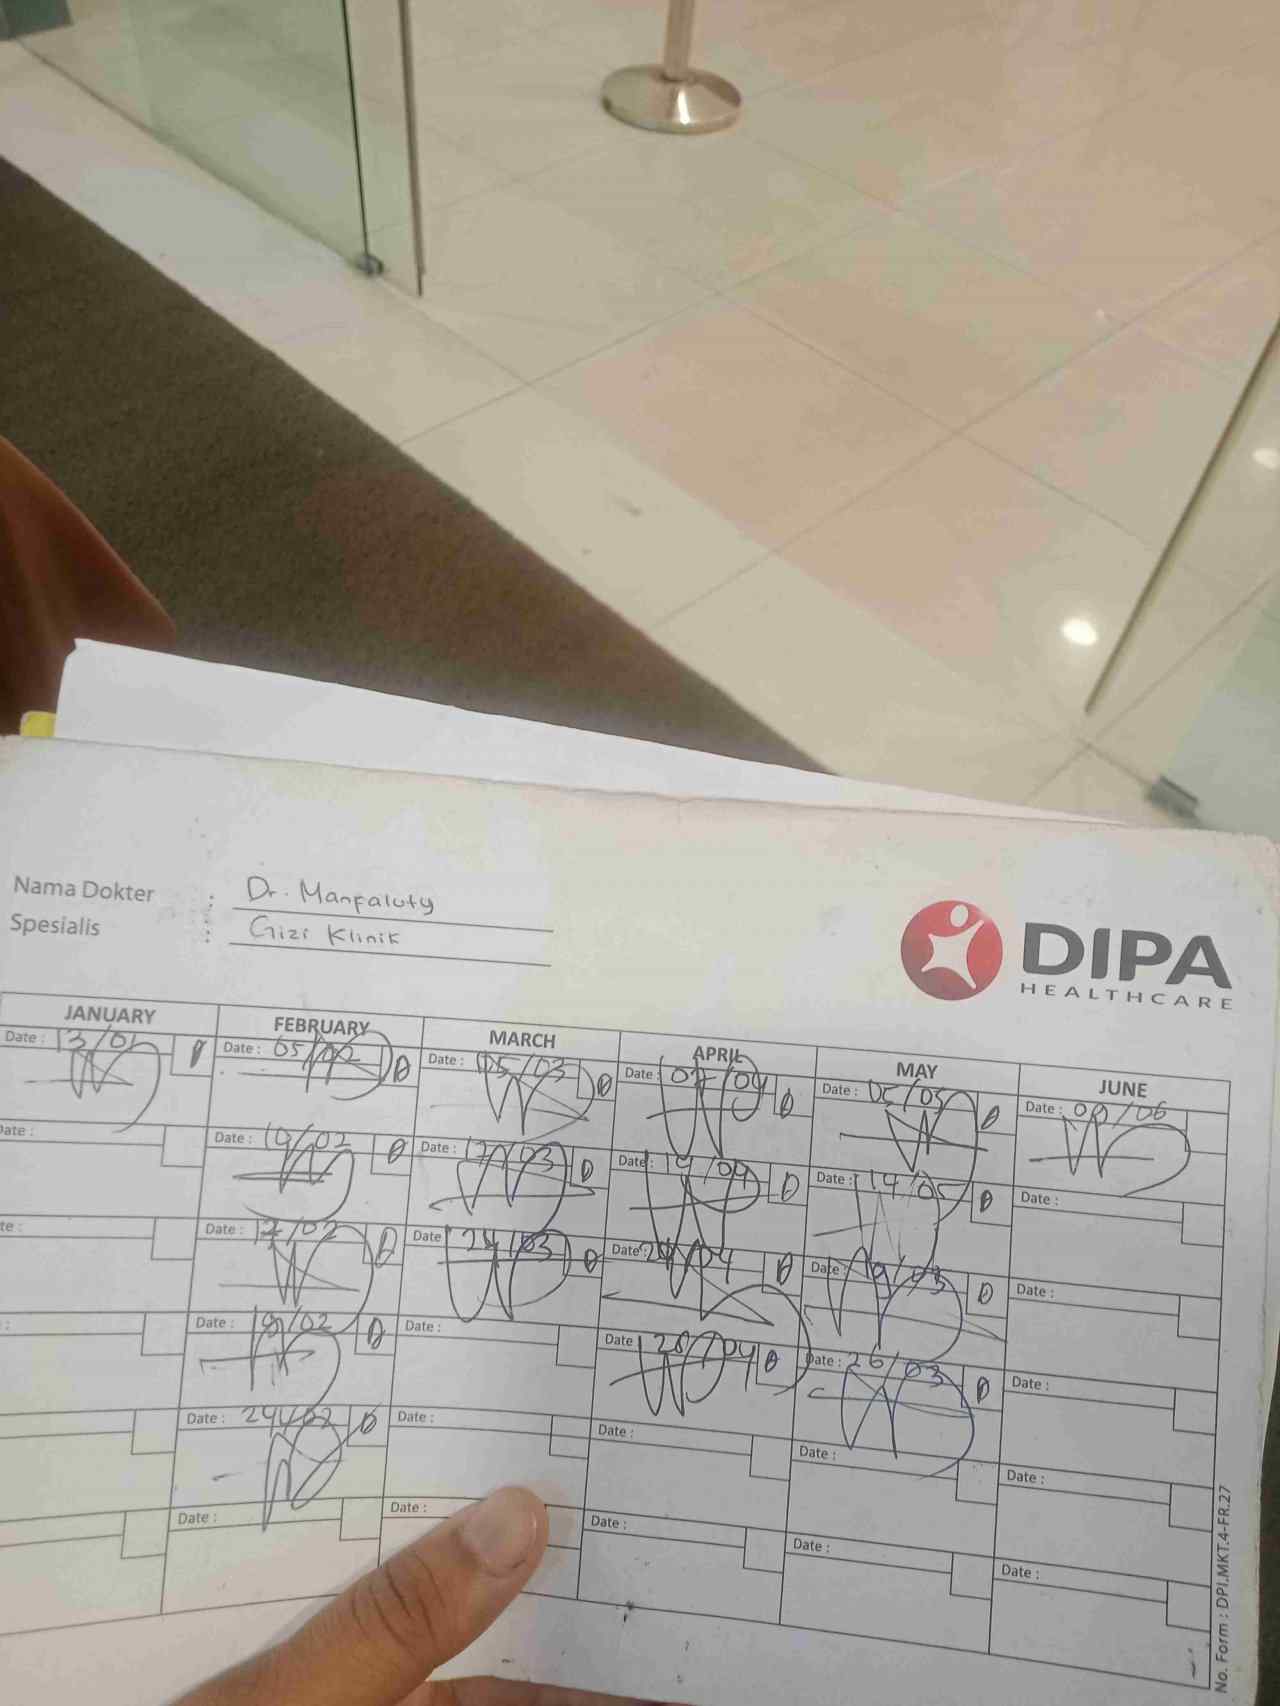 Nama Dokter : Dr. Manfaluty
Spesialis : Gizi Klinik
DIPA
HEALTHCARE
JANUARY FEBRUARY MARCH APRIL MAY JUNE
Date : 13/01 Date : 05/02 Date : 05/03 Date : 07/04 Date : 05/05 Date : /06
Date : Date : 10/02 Date : 17/03 Date : 14/04 Date : 14/05 Date :
te : Date : 17/02 Date : 24/03 Date : /04 Date : 19/03 Date :
: Date : 19/02 Date : Date : 28/04 Date : 26/03 Date :
Date : 24/02 Date : Date : Date : Date :
Date : Date : Date : Date : Date :
No. Form : DPI.MKT.4-FR.27